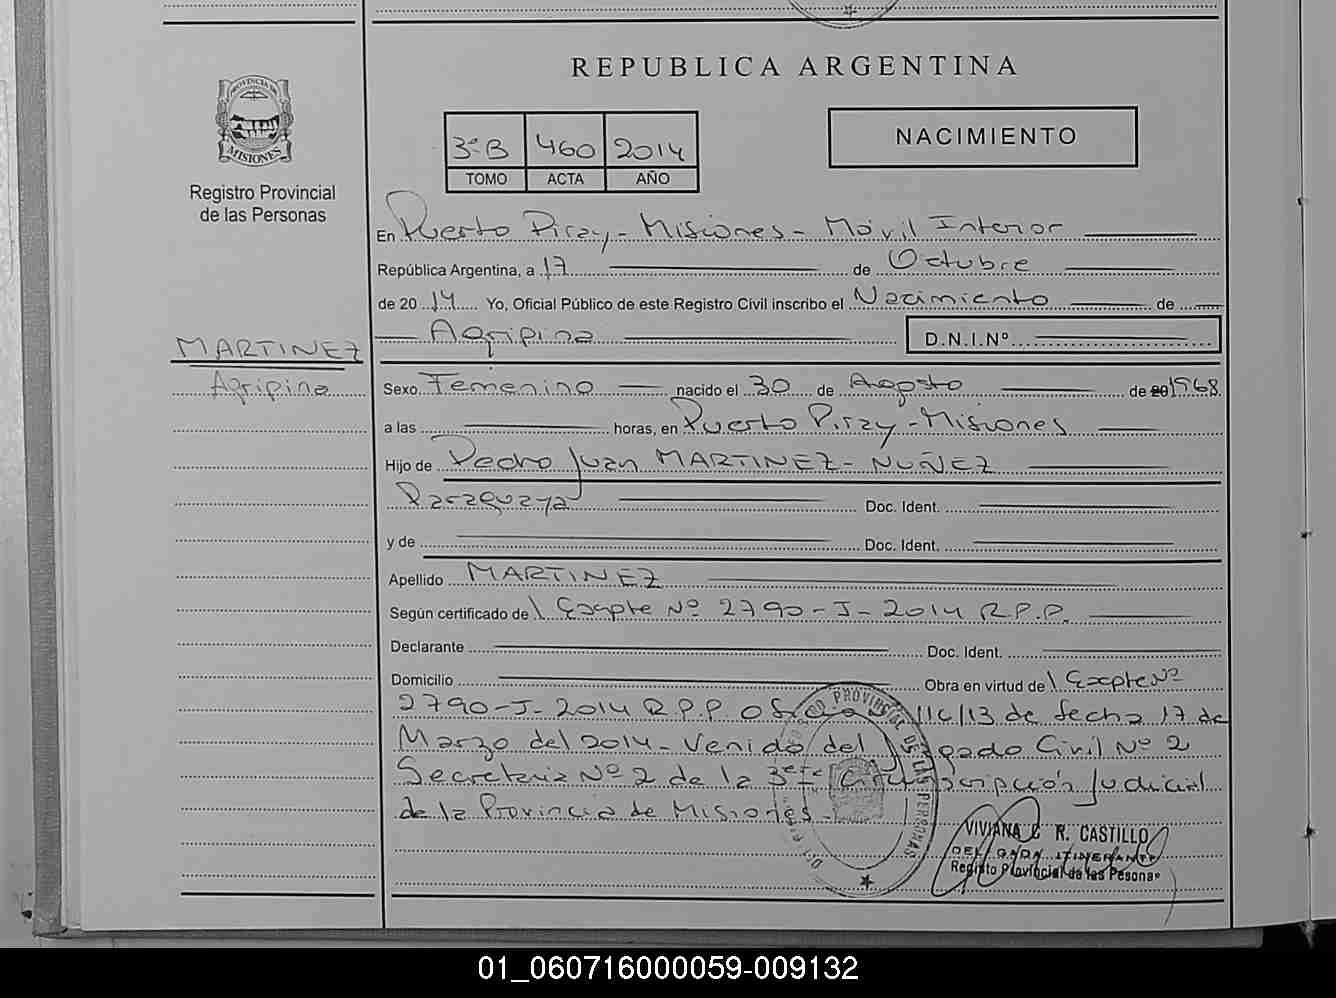 REPUBLICA ARGENTINA
PROVINCIA DE
MISIONES
Registro Provincial
de las Personas
3ºB 460 2014
TOMO ACTA AÑO
NACIMIENTO
En Puerto Piray - Misiones - Móvil Interior
República Argentina, a 17 de Octubre
de 20 14 Yo, Oficial Público de este Registro Civil inscribo el Nacimiento de
Agripina D.N.I.Nº
MARTINEZ
Agripina
Sexo Femenino nacido el 30 de Agosto de 20 1968
a las horas, en Puerto Piray - Misiones
Hijo de Pedro Juan MARTINEZ - NUÑEZ
Paraguaya Doc. Ident.
y de Doc. Ident.
Apellido MARTINEZ
Según certificado de Expte Nº 2790-J-2014 R.P.P.
Declarante Doc. Ident.
Domicilio Obra en virtud de Expte Nº
2790-J-2014 R.P.P. Oficio 116/13 de fecha 17 de
Marzo del 2014 - Venido del Juzgado Civil Nº 2
Secretaria Nº 2 de la 3era Circunscripción Judicial
de la Provincia de Misiones -
PROVINCIAL DE LAS PERSONAS
VIVIANA C R. CASTILLO
DELEGADA ITINERANTE
Registro Provincial de las Pesonas
01_060716000059-009132